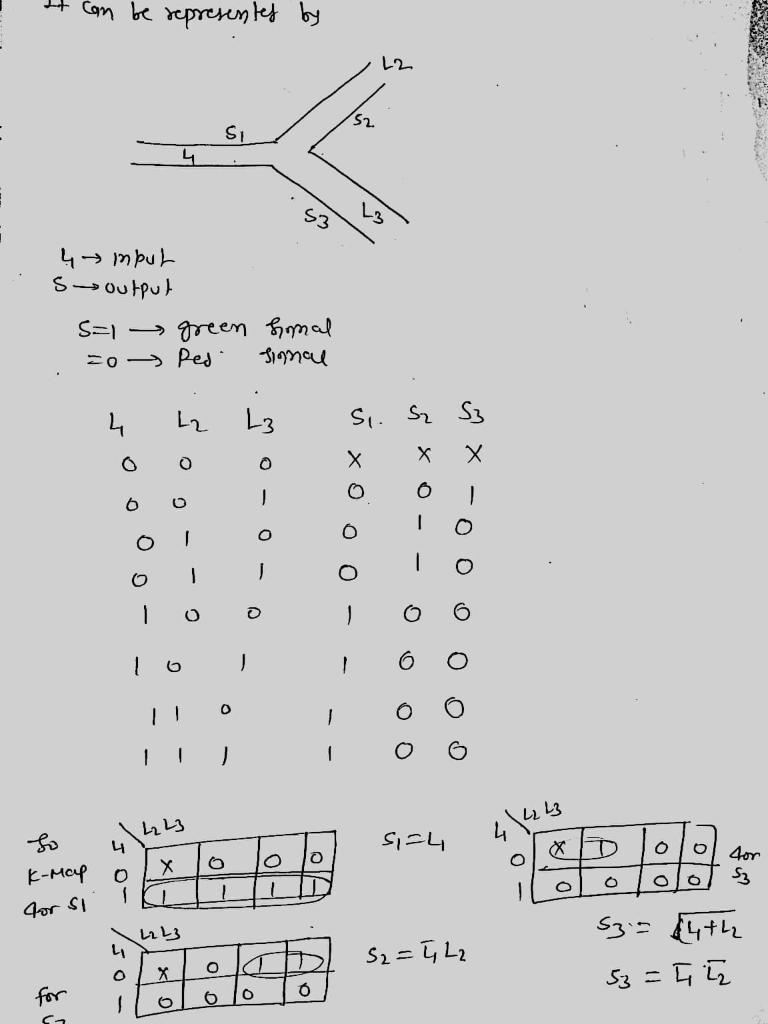 It can be represented by
L2
S1
S2
L1
S3
L3
L1 → input
S → output
S=1 → green signal
=0 → Red signal
L1 L2 L3 S1. S2 S3
0 0 0 X X X
0 0 1 0 0 1
0 1 0 0 1 0
0 1 1 0 1 0
1 0 0 1 0 0
1 0 1 1 0 0
1 1 0 1 0 0
1 1 1 1 0 0
So
K-Map
for S1
L1 L2 L3
0 X 0 0 0
1 1 1 1 1
S1 = L1
L1 L2 L3
0 X 1 0 0
1 0 0 0 0
for
S3
S3 = \overline{L1+L2}
S3 = L̅1 L̅2
for
L1 L2 L3
0 X 0 1 1
1 0 0 0 0
S2 = L̅1 L2